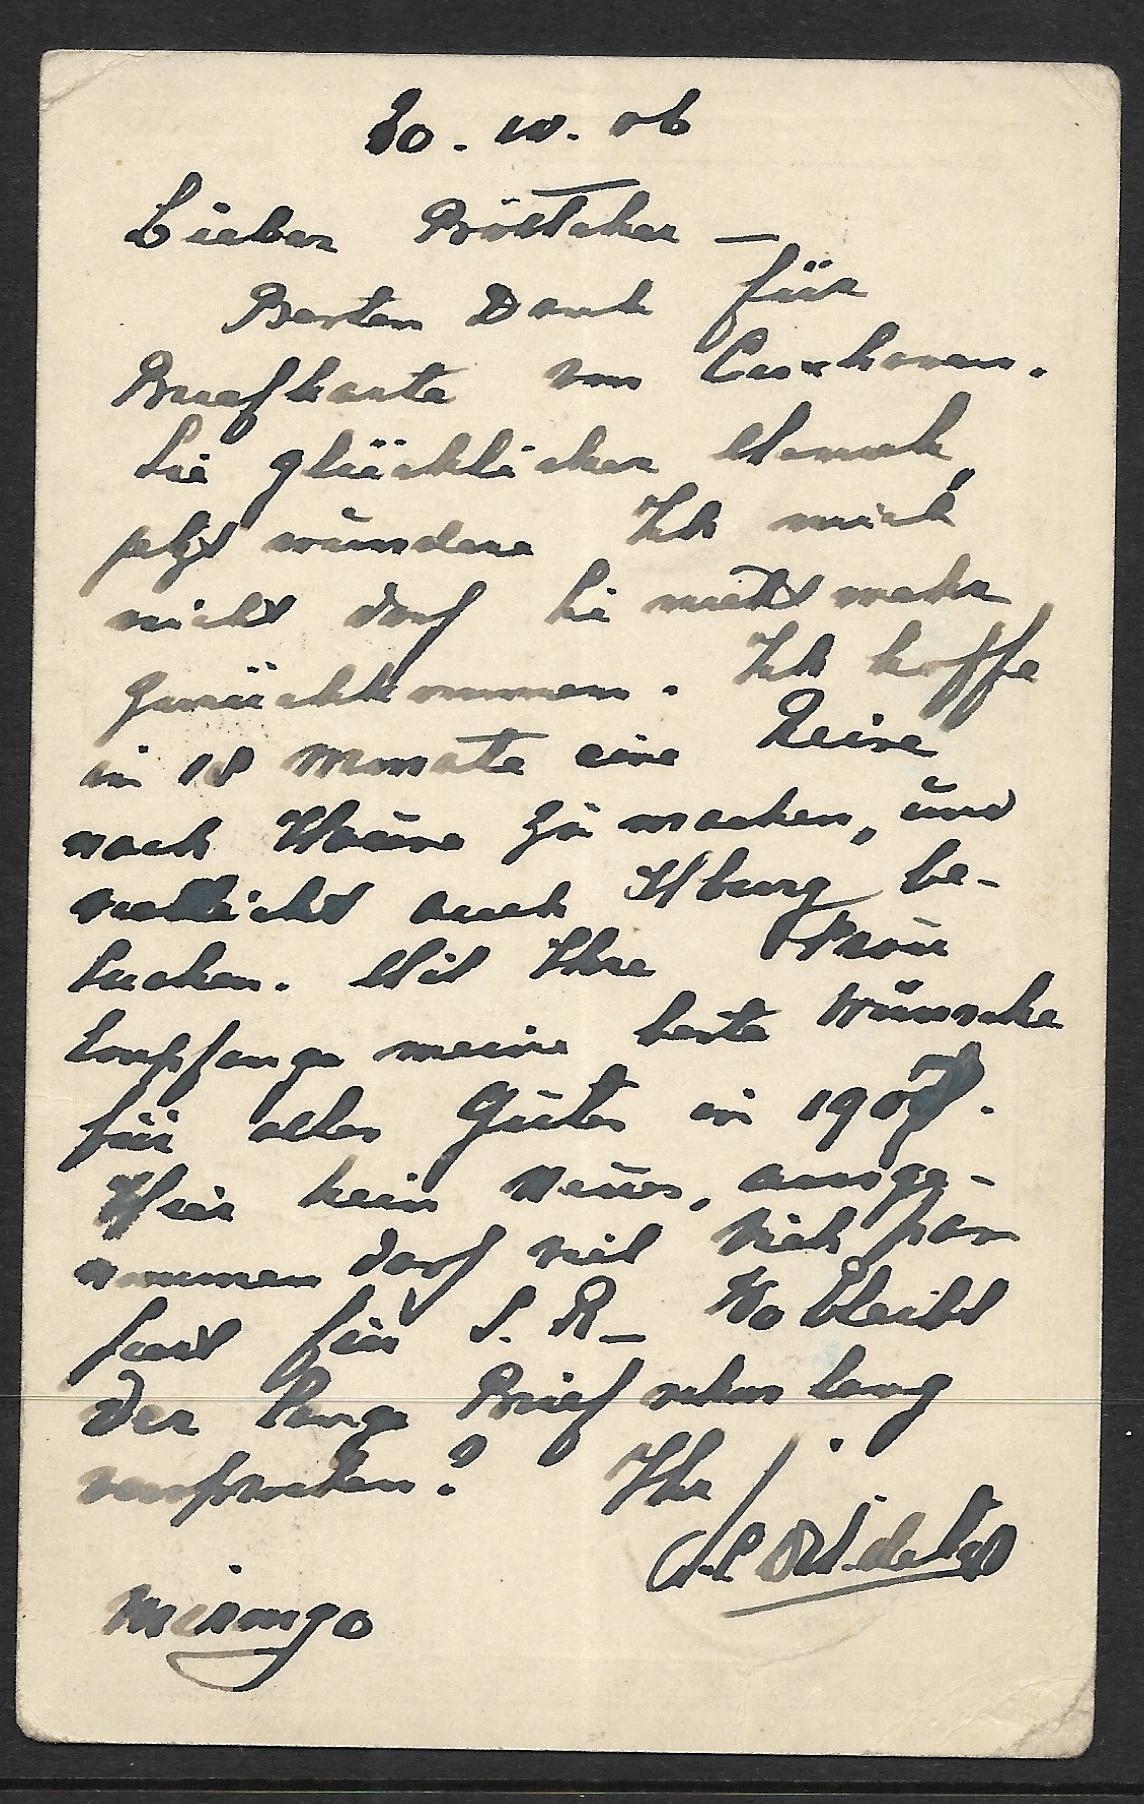 30. 10. 06
Lieber Böttcher —
Besten Dank für
Briefkarte von Cuxhaven.
Sie glücklicher Mensch,
jetzt wundere Ich mich
nicht das Sie nicht mehr
zurückkommen. Ich hoffe
in 18 Monate eine Reise
nach Hause zu machen, und
vielleicht auch Hburg be-
suchen. Mit Ihre Frau
Empfange meine beste Wünsche
für alles Gutes in 1907.
Hier kein Neues, ausge-
nommen das viel Vieh
für S. R— Wo bleibt
der lange Brief schon lang
versprochen?
Ihr
Mirongo